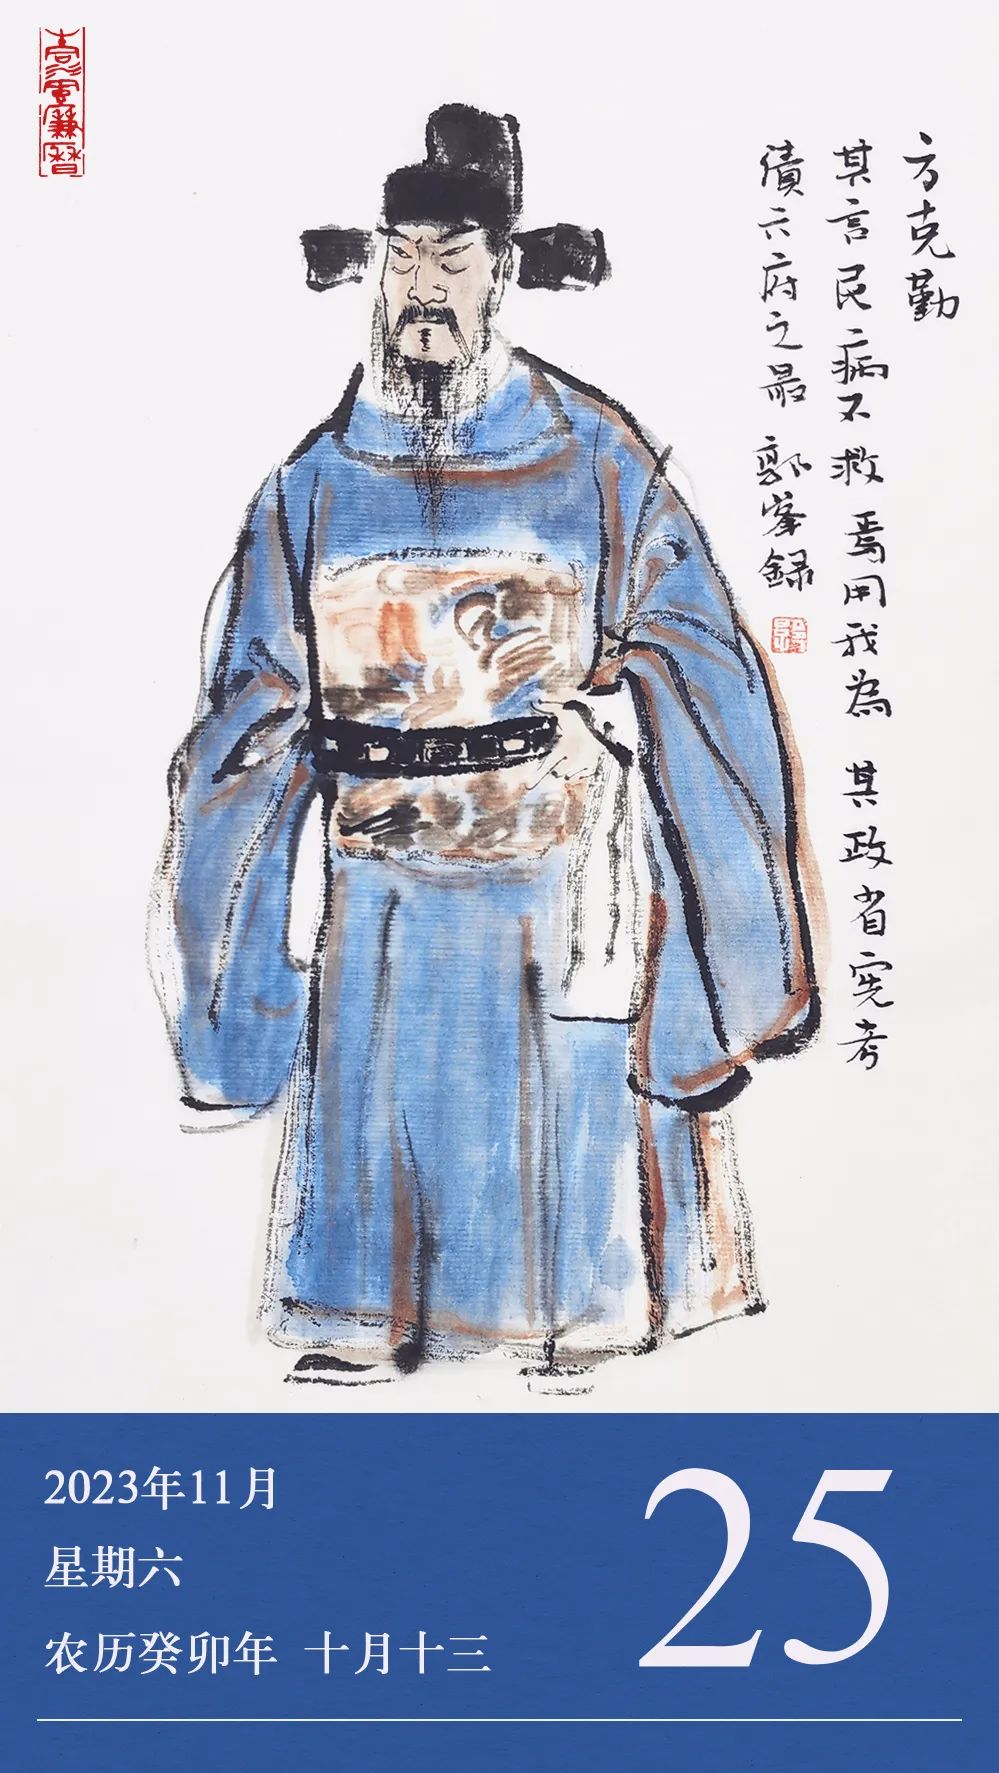 方克勤
其言民病不救焉用我為 其政省宪考
績六府之最 郭峯録
2023年11月
星期六
农历癸卯年 十月十三
25